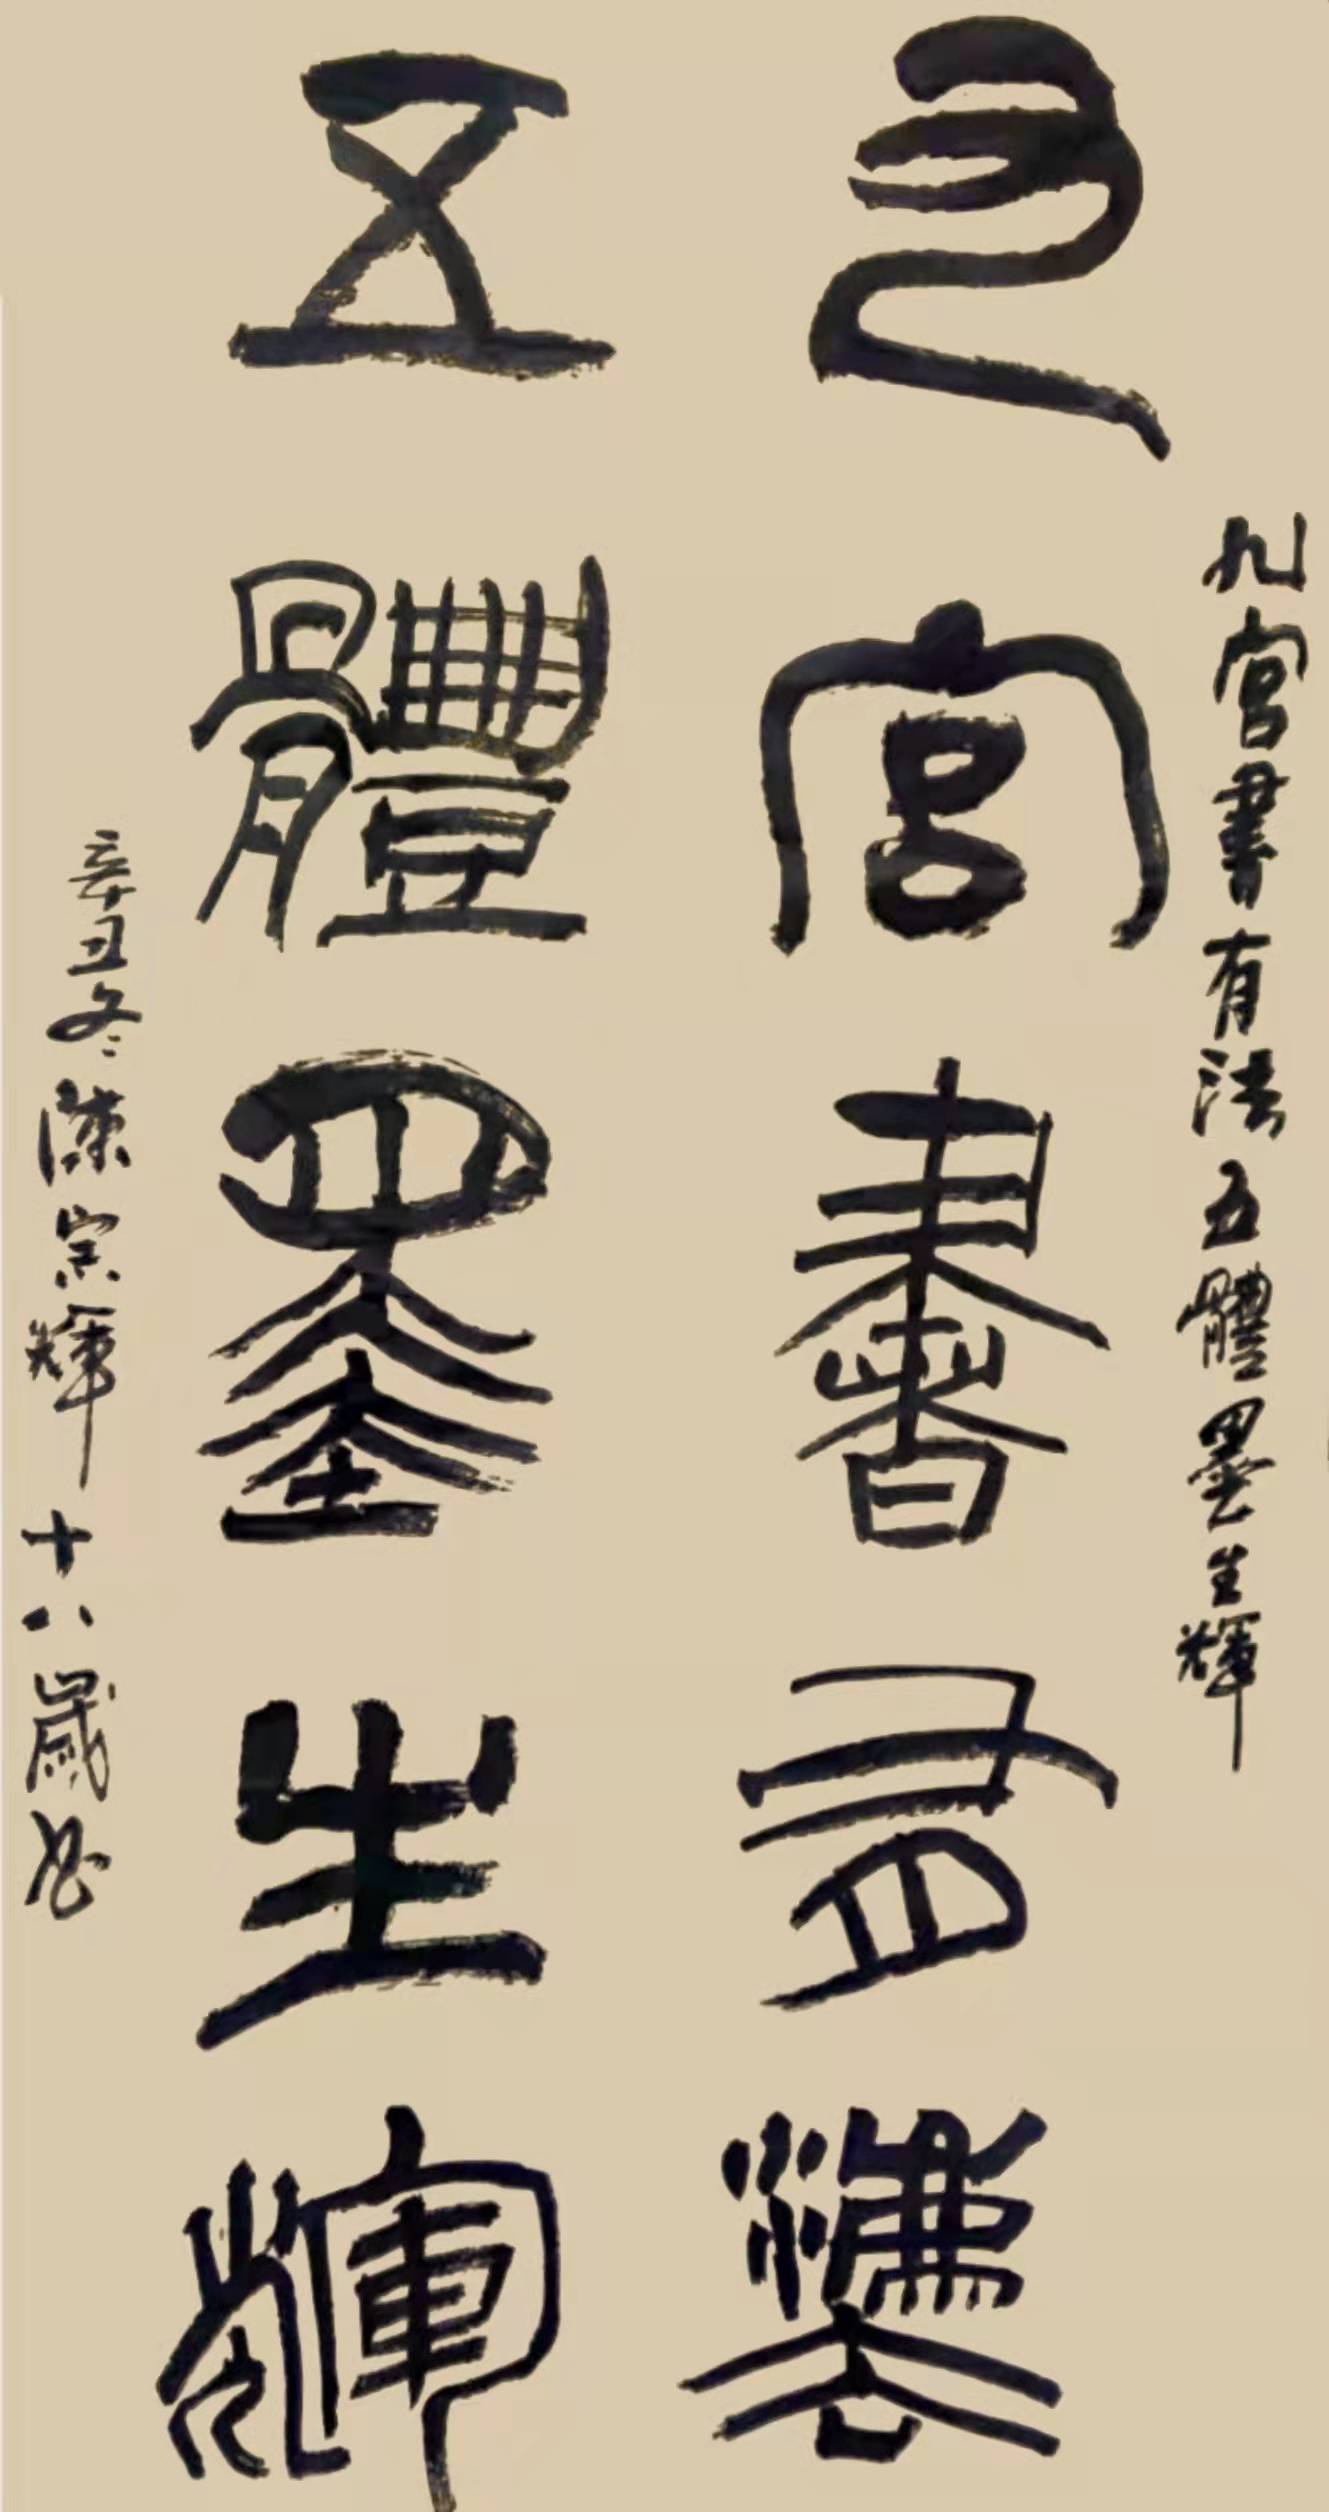 九宮書有法五體墨生輝
九宮書有灋
五體墨生輝
辛丑冬陳宗輝十八歲書